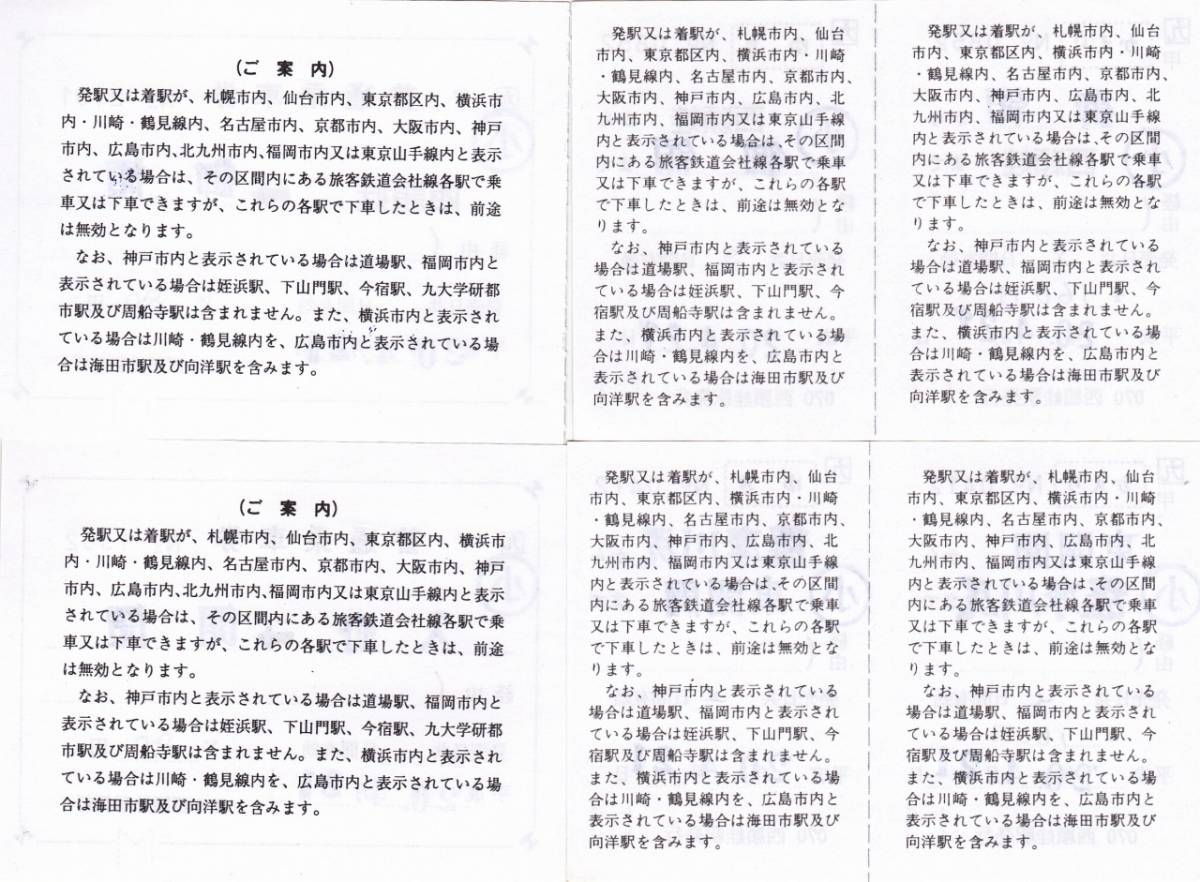 (ご案内)
発駅又は着駅が、札幌市内、仙台市内、東京都区内、横浜市
内・川崎・鶴見線内、名古屋市内、京都市内、大阪市内、神戸
市内、広島市内、北九州市内、福岡市内又は東京山手線内と表示
されている場合は、その区間内にある旅客鉄道会社線各駅で乗
車又は下車できますが、これらの各駅で下車したときは、前途
は無効となります。
なお、神戸市内と表示されている場合は道場駅、福岡市内と
表示されている場合は姪浜駅、下山門駅、今宿駅、九大学研都
市駅及び周船寺駅は含まれません。また、横浜市内と表示され
ている場合は川崎・鶴見線内を、広島市内と表示されている場
合は海田市駅及び向洋駅を含みます。
発駅又は着駅が、札幌市内、仙台
市内、東京都区内、横浜市内・川崎
・鶴見線内、名古屋市内、京都市内、
大阪市内、神戸市内、広島市内、北
九州市内、福岡市内又は東京山手線
内と表示されている場合は、その区間
内にある旅客鉄道会社線各駅で乗車
又は下車できますが、これらの各駅
で下車したときは、前途は無効とな
ります。
なお、神戸市内と表示されている
場合は道場駅、福岡市内と表示され
ている場合は姪浜駅、下山門駅、今
宿駅及び周船寺駅は含まれません。
また、横浜市内と表示されている場
合は川崎・鶴見線内を、広島市内と
表示されている場合は海田市駅及び
向洋駅を含みます。
発駅又は着駅が、札幌市内、仙台
市内、東京都区内、横浜市内・川崎
・鶴見線内、名古屋市内、京都市内、
大阪市内、神戸市内、広島市内、北
九州市内、福岡市内又は東京山手線
内と表示されている場合は、その区間
内にある旅客鉄道会社線各駅で乗車
又は下車できますが、これらの各駅
で下車したときは、前途は無効とな
ります。
なお、神戸市内と表示されている
場合は道場駅、福岡市内と表示され
ている場合は姪浜駅、下山門駅、今
宿駅及び周船寺駅は含まれません。
また、横浜市内と表示されている場
合は川崎・鶴見線内を、広島市内と
表示されている場合は海田市駅及び
向洋駅を含みます。
(ご案内)
発駅又は着駅が、札幌市内、仙台市内、東京都区内、横浜市
内・川崎・鶴見線内、名古屋市内、京都市内、大阪市内、神戸
市内、広島市内、北九州市内、福岡市内又は東京山手線内と表示
されている場合は、その区間内にある旅客鉄道会社線各駅で乗
車又は下車できますが、これらの各駅で下車したときは、前途
は無効となります。
なお、神戸市内と表示されている場合は道場駅、福岡市内と
表示されている場合は姪浜駅、下山門駅、今宿駅、九大学研都
市駅及び周船寺駅は含まれません。また、横浜市内と表示され
ている場合は川崎・鶴見線内を、広島市内と表示されている場
合は海田市駅及び向洋駅を含みます。
発駅又は着駅が、札幌市内、仙台
市内、東京都区内、横浜市内・川崎
・鶴見線内、名古屋市内、京都市内、
大阪市内、神戸市内、広島市内、北
九州市内、福岡市内又は東京山手線
内と表示されている場合は、その区間
内にある旅客鉄道会社線各駅で乗車
又は下車できますが、これらの各駅
で下車したときは、前途は無効とな
ります。
なお、神戸市内と表示されている
場合は道場駅、福岡市内と表示され
ている場合は姪浜駅、下山門駅、今
宿駅及び周船寺駅は含まれません。
また、横浜市内と表示されている場
合は川崎・鶴見線内を、広島市内と
表示されている場合は海田市駅及び
向洋駅を含みます。
発駅又は着駅が、札幌市内、仙台
市内、東京都区内、横浜市内・川崎
・鶴見線内、名古屋市内、京都市内、
大阪市内、神戸市内、広島市内、北
九州市内、福岡市内又は東京山手線
内と表示されている場合は、その区間
内にある旅客鉄道会社線各駅で乗車
又は下車できますが、これらの各駅
で下車したときは、前途は無効とな
ります。
なお、神戸市内と表示されている
場合は道場駅、福岡市内と表示され
ている場合は姪浜駅、下山門駅、今
宿駅及び周船寺駅は含まれません。
また、横浜市内と表示されている場
合は川崎・鶴見線内を、広島市内と
表示されている場合は海田市駅及び
向洋駅を含みます。